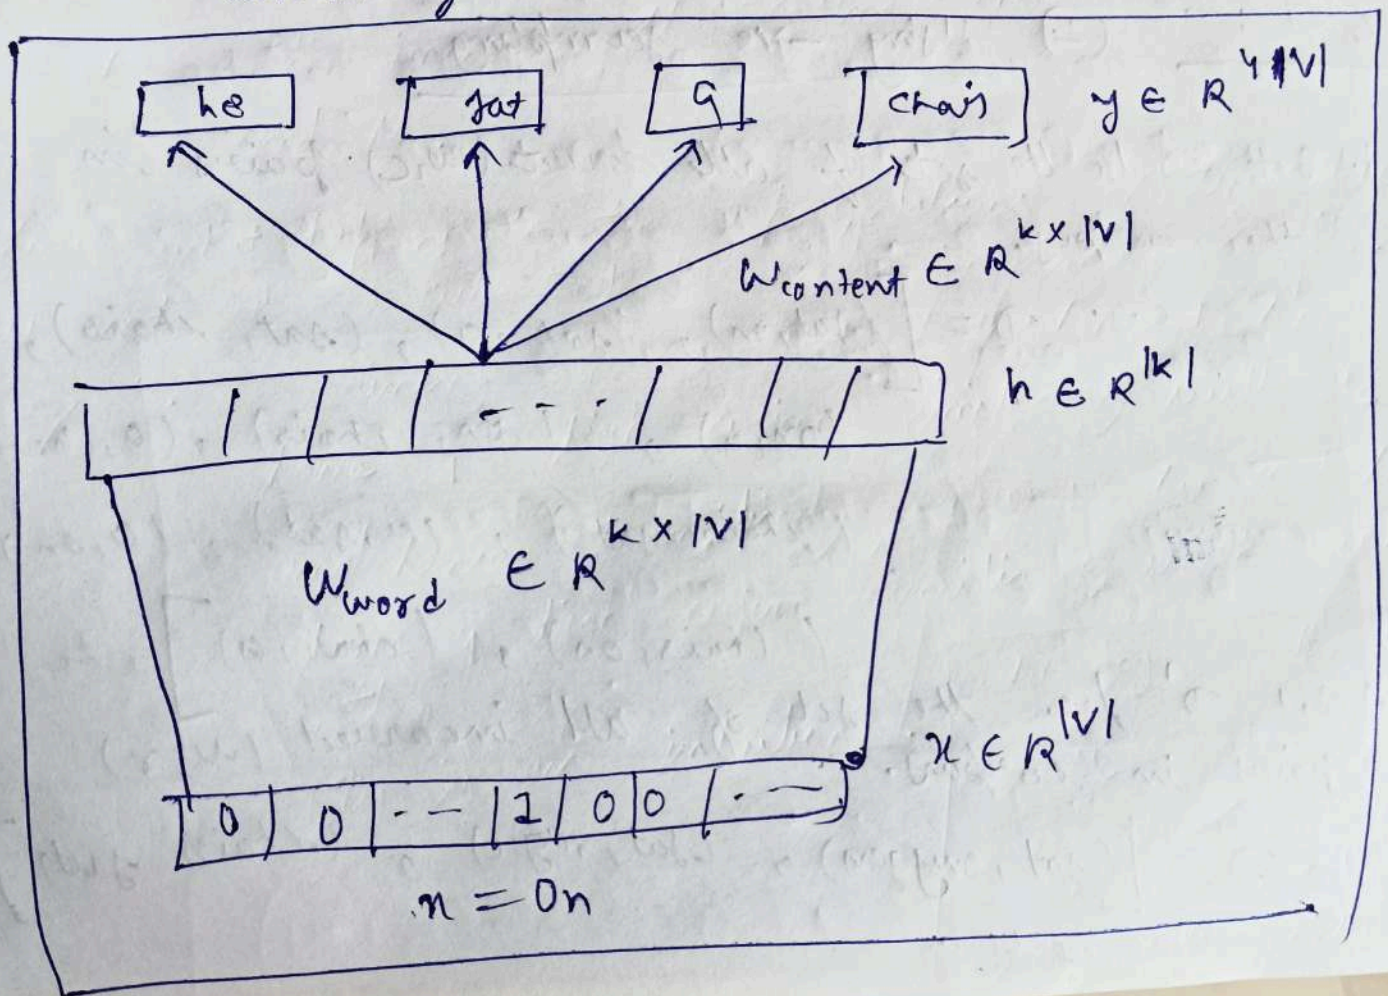 he sat a chair y ∈ R^4|V|
W_content ∈ R^k×|V|
- - - h ∈ R^|k|
W_word ∈ R^k×|V|
x ∈ R^|V|
0 0 -- 1 0 0 . --
x = On